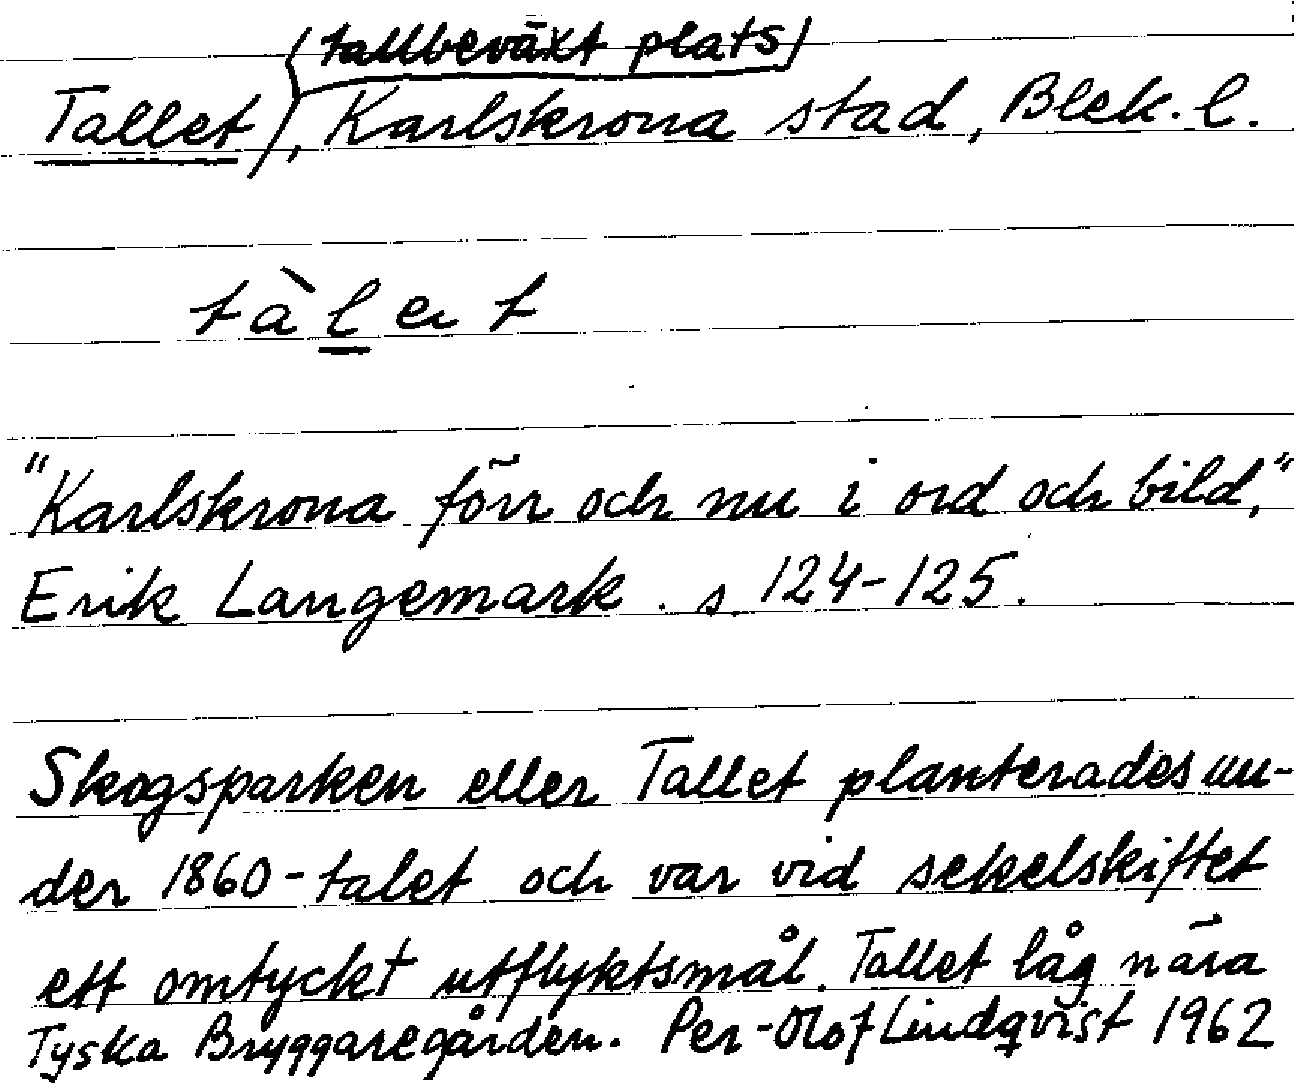 (tallbeväxt plats)
Tallet, Karlskrona stad, Blek. l.
tàlet
"Karlskrona förr och nu i ord och bild,"
Erik Langemark. s 124-125.
Skogsparken eller Tallet planterades un-
der 1860-talet och var vid sekelskiftet
ett omtyckt utflyktsmål. Tallet låg nära
Tyska Bryggaregården. Per-Olof Lindqvist 1962